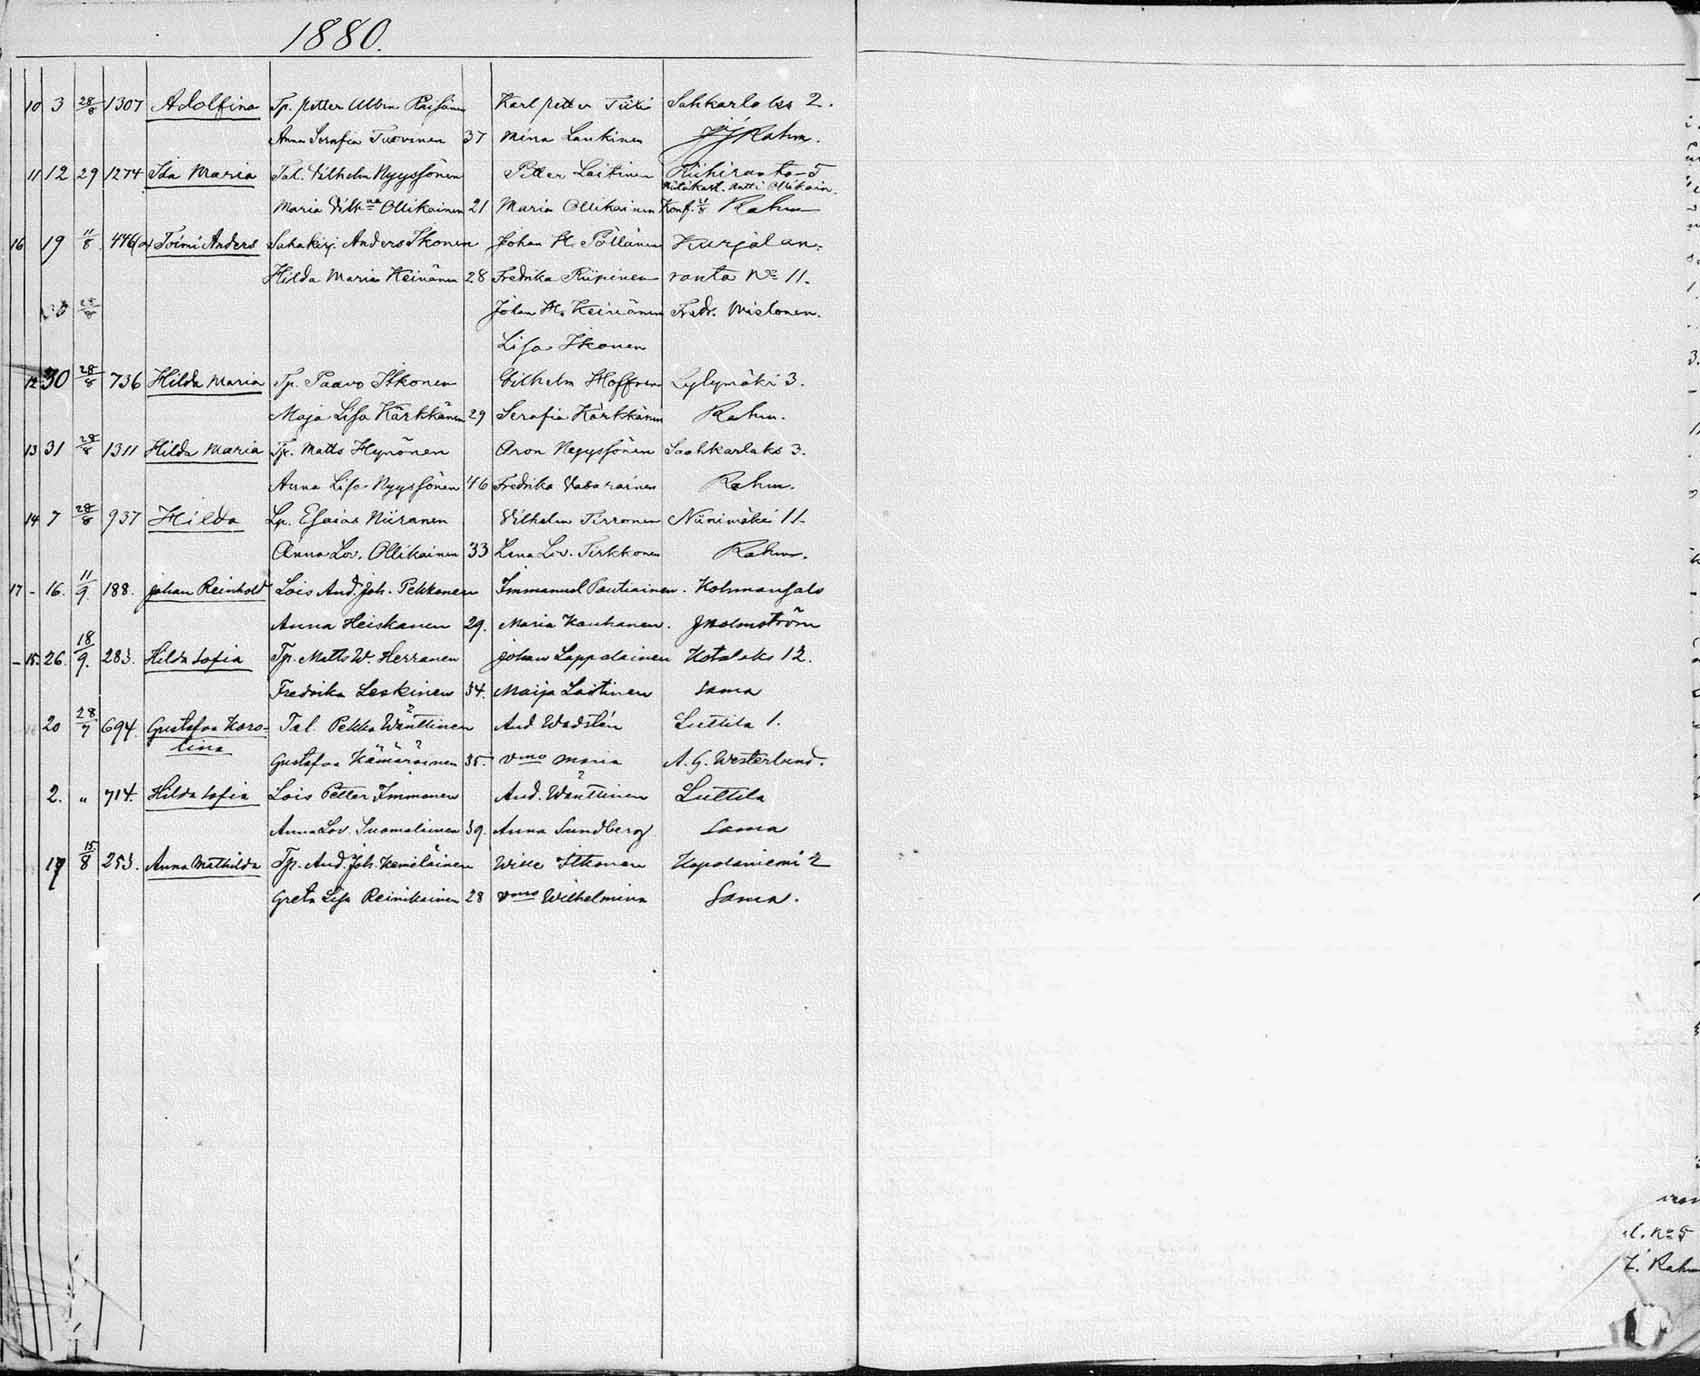 1880.
10 3 28/8 1307 Adolfina Tp. Petter Albin Karl Petter Tiiki 2.
Anna Serafia Tuovinen 37 Mina Laukinen Rahm.
11 12 29 1274 Ida Maria Tal. Vilhelm Nyyssönen Petter Laitinen Riihiranta 5
Maria Vilh:na Ollikainen 21 Maria Ollikainen Konf. Rahm
16 19 11/8 Toimi Anders Anders Ikonen Johan H. Pöllänen Kurjalan-
Hilda Maria Keinänen 28 Fredrika Riipinen ranta No 11.
Johan H. Keinänen Fredr. Mielonen.
Lisa Ikonen
12 30 28/8 736 Hilda Maria Tp. Paavo Itkonen Vilhelm Hoffren Lylymäki 3.
Maja Lisa Kärkkänen 29 Serafia Kärkkänen Rahm.
13 31 28/8 1311 Hilda Maria Tp. Matts Hynönen Aron Nyyssönen Saahkarlaks 3.
Anna Lisa Nyyssönen 46 Fredrika Vasarainen Rahm.
14 7 28/8 937 Hilda Lp. Esaias Niiranen Vilhelm Tirronen Niinimäki 11.
Anna Lov. Ollikainen 33 Lena Lov. Pirkkonen Rahm.
17 - 16. 11/9. 188. Johan Reinhold Lois And. Joh. Pekkonen Immanuel Pautiainen. Kohmansalo
Anna Heiskanen 29. Maria Kauhanen. J Malmström
- 15. 26. 18/9. 283. Hilda Sofia Tp. Matts W. Herranen Johan Lappalainen Kotalaks 12.
Fredrika Leskinen 34. Maija Laitinen Sama
20 28/7 694. Gustafva Karo- Tal. Pekka Wänttinen And. Wadstén Luttila 1.
lina
Gustafva Kämäräinen 35. vmo Maria A. G. Westerlund.
2. " 714. Hilda Sofia Lois Petter Immonen And. Wänttinen Luttila
Anna Lov. Suomalainen 39. Anna Sundberg Sama
17 15/8 253. Anna Mathilda Tp. And. Joh. Kemiläinen Wille Itkonen 2
Greta Lisa Reinikainen 28 vmo Wilhelmina Sama.
No 5